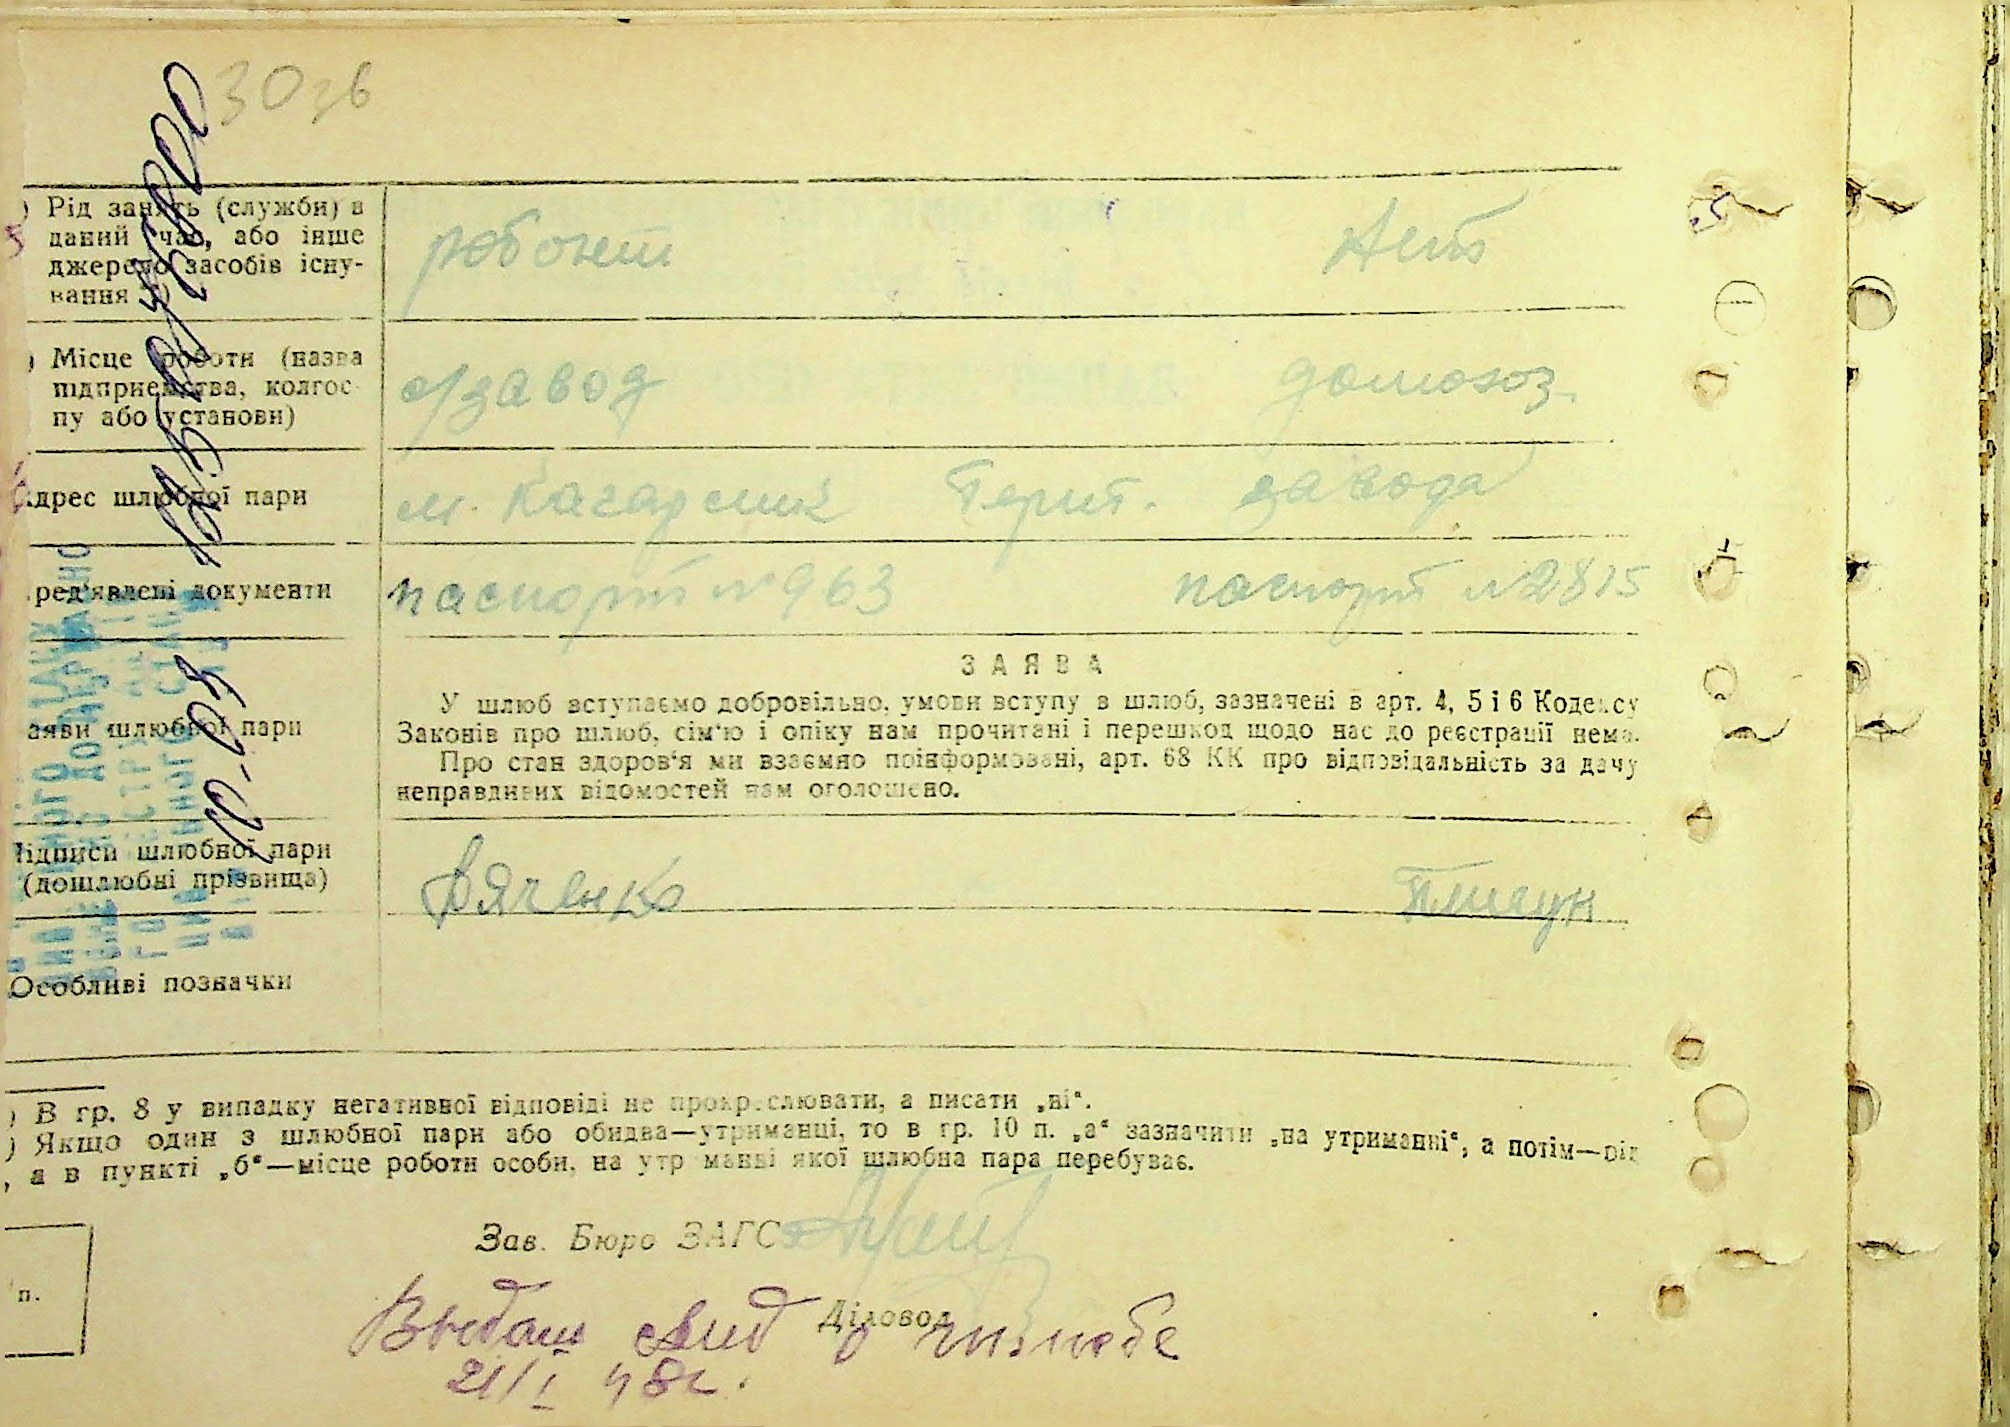 30 зв
) Рід занять (служби) в
даний час, або інше
джерело засобів існу-
вання
робочий
Нет
) Місце роботи (назва
підприємства, колгос-
пу або установи)
с/завод
домохоз.
Адрес шлюбної пари
м. Кагарлик Терит. завода
ред'явлені документи
паспорт № 963
паспорт № 2815
аяви шлюбної пари
ЗАЯВА
У шлюб вступаємо добровільно, умови вступу в шлюб, зазначені в арт. 4, 5 і 6 Кодексу
Законів про шлюб, сім'ю і опіку нам прочитані і перешкод щодо нас до реєстрації нема.
Про стан здоров'я ми взаємно поінформовані, арт. 68 КК про відповідальність за дачу
неправдивих відомостей нам оголошено.
Підписи шлюбної пари
(дошлюбні прізвища)
Дяченко
Особливі позначки
) В гр. 8 у випадку негативної відповіді не прокреслювати, а писати „ні“.
) Якщо один з шлюбної пари або обидва—утриманці, то в гр. 10 п. „а“ зазначити „на утриманні“, а потім—рік
, а в пункті „б“—місце роботи особи, на утриманні якої шлюбна пара перебуває.
Зав. Бюро ЗАГС
п.
Діловод
21/I 48г.